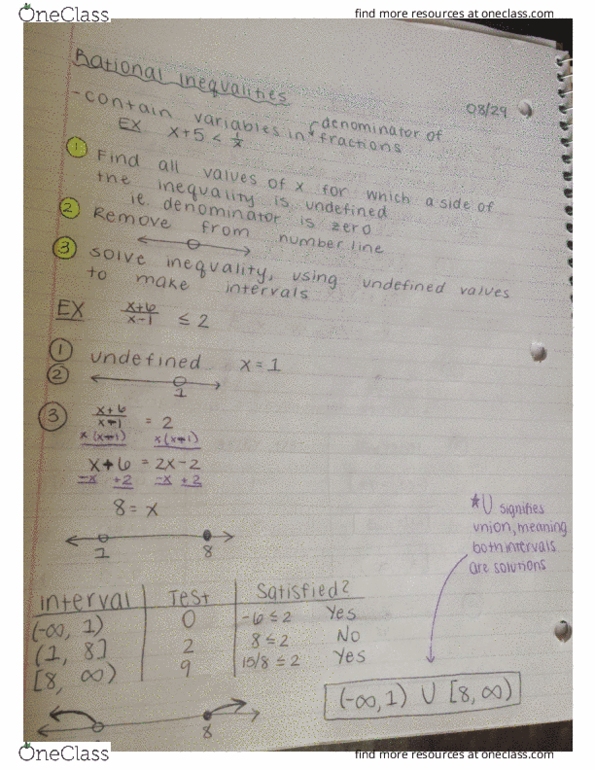 OneClass
find more resources at oneclass.com
Rational Inequalities
08/29
-contain variables in denominator of fractions
EX x+5 < 1/x
① Find all values of x for which a side of
the inequality is undefined
ie. denominator is zero
② Remove from number line
③ solve inequality, using undefined values
to make intervals
EX x+6/x-1 ≤ 2
① undefined x=1
②
1
③ x+6/x-1 = 2
x(x-1) x(x-1)
x+6 = 2x-2
-x +2 -x +2
8 = x
1 8
*U signifies
union, meaning
both intervals
are solutions
interval Test Satisfied?
(-∞, 1) 0 -6 ≤ 2 Yes
(1, 8] 2 8 ≤ 2 No
[8, ∞) 9 15/8 ≤ 2 Yes
8
(-∞,1) U [8,∞)
OneClass
find more resources at oneclass.com